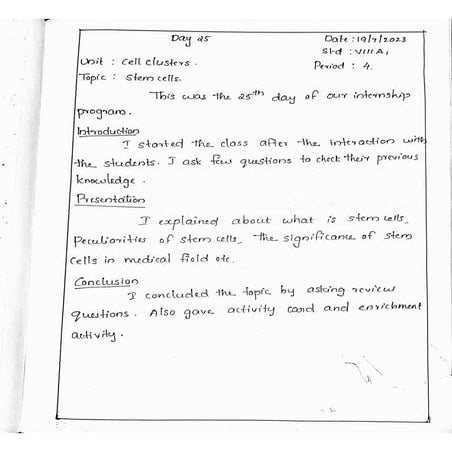 Day 25 Date : 19/7/2023
Std : VIII A1
Unit : Cell clusters. Period : 4.
Topic : Stem cells.
This was the 25th day of our internship
program.
Introduction
I started the class after the interaction with
the students. I ask few questions to check their previous
knowledge.
Presentation
I explained about what is stem cells,
Peculiarities of stem cells, the significance of stem
cells in medical field etc.
Conclusion
I concluded the topic by asking review
questions. Also gave activity card and enrichment
activity.